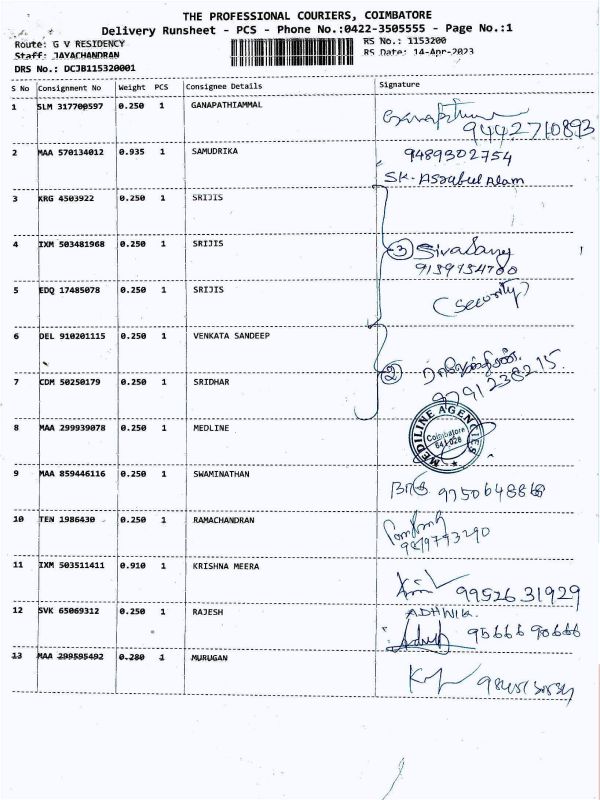 THE PROFESSIONAL COURIERS, COIMBATORE
Delivery Runsheet - PCS - Phone No.:0422-3505555 - Page No.:1
Route: G V RESIDENCY
RS No.: 1153200
Staff: JAYACHANDRAN
RS Date: 14-Apr-2023
DRS No.: DCJB115320001
S No Consignment No Weight PCS Consignee Details Signature
1 SLM 317700597 0.250 1 GANAPATHIAMMAL
9442710893
2 MAA 570134012 0.935 1 SAMUDRIKA 9489302754
SK. Assabul Alam
3 KRG 4503922 0.250 1 SRIJIS
4 IXM 503481968 0.250 1 SRIJIS 3
5 EDQ 17485078 0.250 1 SRIJIS (Security)
6 DEL 910201115 0.250 1 VENKATA SANDEEP
7 CDM 50250179 0.250 1 SRIDHAR 2
9791238215
8 MAA 299939078 0.250 1 MEDLINE
MEDILINE AGENCIES
Coimbatore
641 028
9 MAA 859446116 0.250 1 SWAMINATHAN
10 TEN 1986430 0.250 1 RAMACHANDRAN
11 IXM 503511411 0.910 1 KRISHNA MEERA
99526 31929
12 SVK 65069312 0.250 1 RAJESH ADHWIK.
95666 90666
13 MAA 299595492 0.280 1 MURUGAN